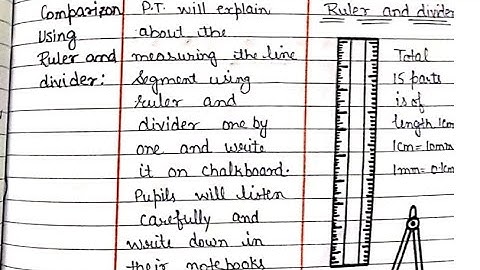 Comparizon
Using
Ruler and
divider:
P.T. will explain
about the
measuring the line
segment using
ruler and
divider one by
one and write
it on chalkboard.
Pupils will listen
carefully and
write down in
their notebooks
Ruler and divider
Total
15 parts
is of
length 1cm
1cm=10mm
1mm=0.1cm